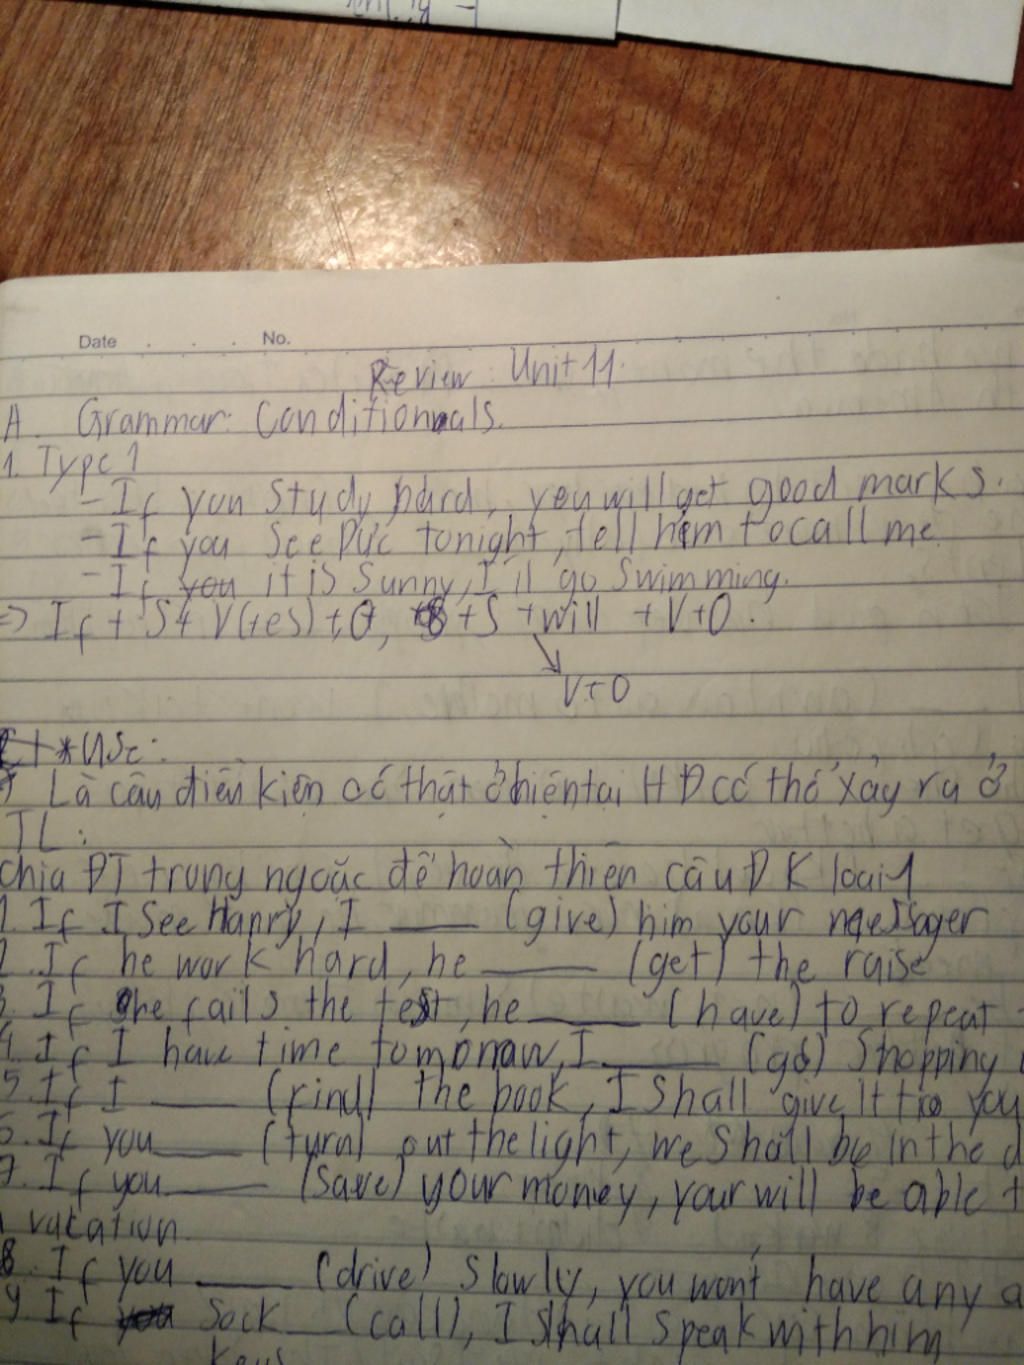 Date No.
Review: Unit 11.
A. Grammar: Conditionals.
1. Type 1
- If you study hard, you will get good marks.
- If you see Đức tonight, tell him to call me
- If it is sunny, I'll go swimming.
=> If + S + V(+es) + O, + S + will + V + O.
V + O
* Use:
Là câu điều kiện có thật ở hiện tại HĐ có thể xảy ra ở
TL:
Chia ĐT trong ngoặc để hoàn thiện câu ĐK loại 1
1. If I see Hanry, I ___ (give) him your
2. If he work hard, he ___ (get) the raise
3. If he fails the test, he ___ (have) to repeat
4. If I have time tomorraw, I ___ (go) shopping
5. If I ___ (find) the book, I shall give it to you
6. If you ___ (turn) out the light, we shall be in the d
7. If you ___ (save) your money, your will be able t
vacation.
8. If you ___ (drive) slowly, you won't have any a
9. If Jack ___ (call), I shall speak with him